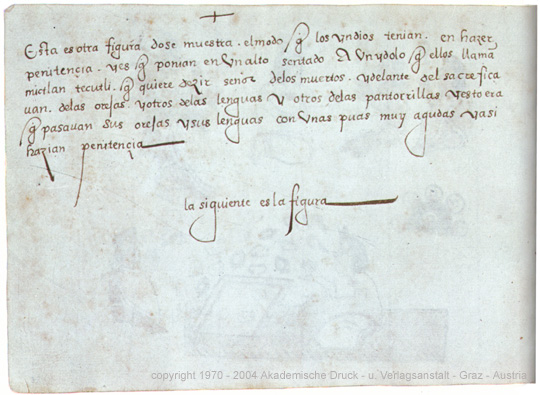 Esta es otra figura dose muestra. el modo q̃ los yndios tenian. en hazer
penitencia. y es q̃ ponian en Un alto sentado A Un ydolo q̃ ellos llamã
mictlan tecutli. q̃ quiere dezir señor de los muertos. y delante del sacrefica
van. de las orejas y otros de las lenguas y otros de las pantorrillas y esto era
q̃ pasavan sus orejas y sus lenguas con Unas puas muy agudas y asi
hazian penitencia
la siguiente es la figura
copyright 1970 - 2004 Akademische Druck - u. Verlagsanstalt - Graz - Austria